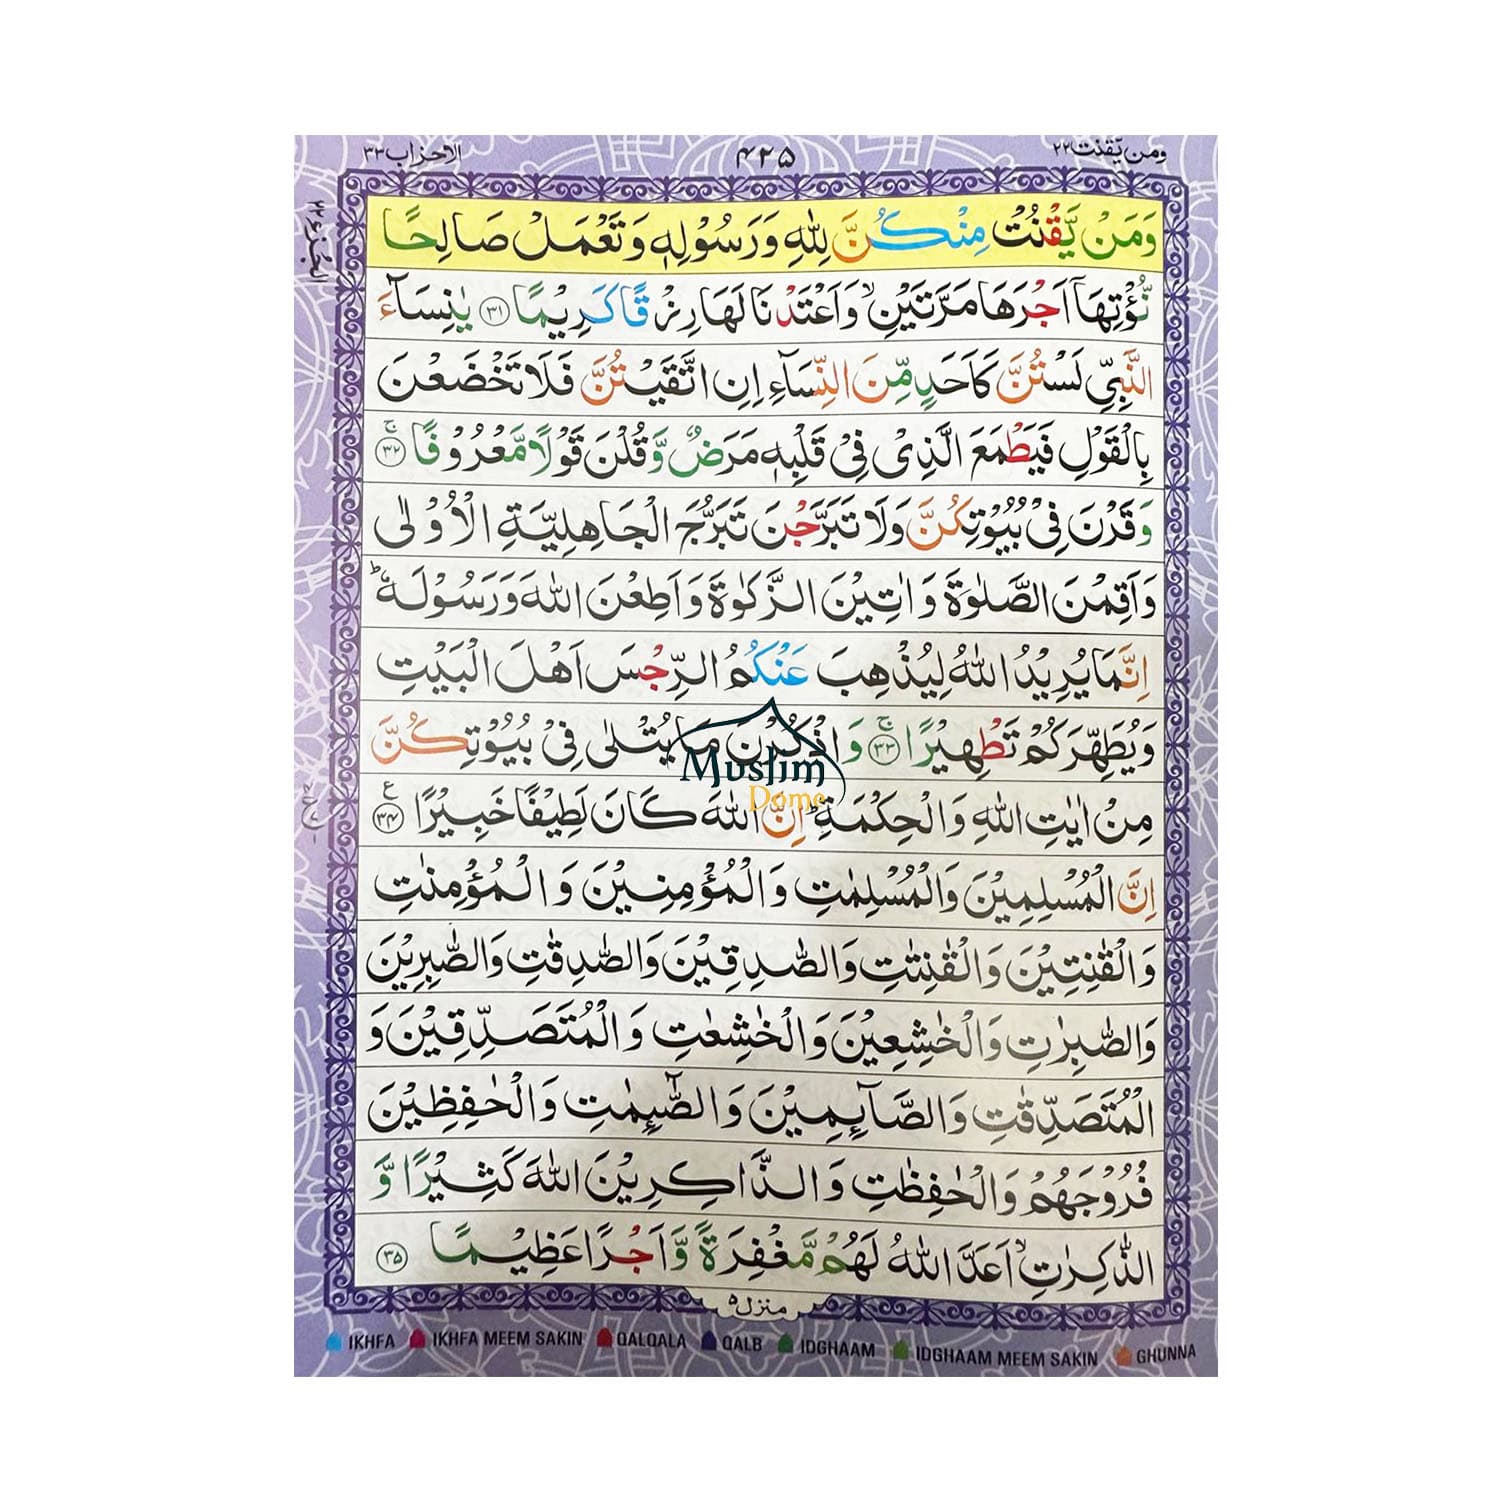 ومن یقنت۲۲
۴۲۵
الاحزاب۳۳
وَمَنْ يَّقْنُتْ مِنْكُنَّ لِلّٰهِ وَرَسُوْلِهٖ وَتَعْمَلْ صَالِحًا
نُّؤْتِهَاۤ اَجْرَهَا مَرَّتَيْنِۙ وَاَعْتَدْنَا لَهَا رِزْقًا كَرِيْمًا ﴿۳۱﴾ يٰنِسَآءَ
النَّبِيِّ لَسْتُنَّ كَاَحَدٍ مِّنَ النِّسَآءِ اِنِ اتَّقَيْتُنَّ فَلَا تَخْضَعْنَ
بِالْقَوْلِ فَيَطْمَعَ الَّذِىْ فِىْ قَلْبِهٖ مَرَضٌ وَّقُلْنَ قَوْلًا مَّعْرُوْفًا ۚ﴿۳۲﴾
وَقَرْنَ فِىْ بُيُوْتِكُنَّ وَلَا تَبَرَّجْنَ تَبَرُّجَ الْجَاهِلِيَّةِ الْاُوْلٰى
وَاَقِمْنَ الصَّلٰوةَ وَاٰتِيْنَ الزَّكٰوةَ وَاَطِعْنَ اللّٰهَ وَرَسُوْلَهٗؕ
اِنَّمَا يُرِيْدُ اللّٰهُ لِيُذْهِبَ عَنْكُمُ الرِّجْسَ اَهْلَ الْبَيْتِ
وَيُطَهِّرَكُمْ تَطْهِيْرًا ۚ﴿۳۳﴾ وَاذْكُرْنَ مَا يُتْلٰى فِىْ بُيُوْتِكُنَّ
مِنْ اٰيٰتِ اللّٰهِ وَالْحِكْمَةِؕ اِنَّ اللّٰهَ كَانَ لَطِيْفًا خَبِيْرًا ﴿۳۴﴾ ع
اِنَّ الْمُسْلِمِيْنَ وَالْمُسْلِمٰتِ وَالْمُؤْمِنِيْنَ وَالْمُؤْمِنٰتِ
وَالْقٰنِتِيْنَ وَالْقٰنِتٰتِ وَالصّٰدِقِيْنَ وَالصّٰدِقٰتِ وَالصّٰبِرِيْنَ
وَالصّٰبِرٰتِ وَالْخٰشِعِيْنَ وَالْخٰشِعٰتِ وَالْمُتَصَدِّقِيْنَ وَ
الْمُتَصَدِّقٰتِ وَالصَّآئِمِيْنَ وَالصّٰٓئِمٰتِ وَالْحٰفِظِيْنَ
فُرُوْجَهُمْ وَالْحٰفِظٰتِ وَالذَّاكِرِيْنَ اللّٰهَ كَثِيْرًا وَّ
الذّٰكِرٰتِۙ اَعَدَّ اللّٰهُ لَهُمْ مَّغْفِرَةً وَّاَجْرًا عَظِيْمًا ﴿۳۵﴾
منزل۵
IKHFA IKHFA MEEM SAKIN QALQALA QALB IDGHAAM IDGHAAM MEEM SAKIN GHUNNA
الجزء ۲۲
Muslim
Dome